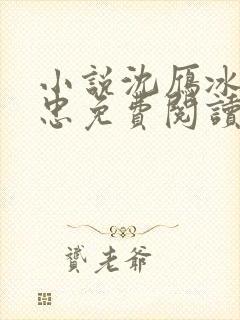 小說沈雁冰
忠免費閱讀
贊老爺